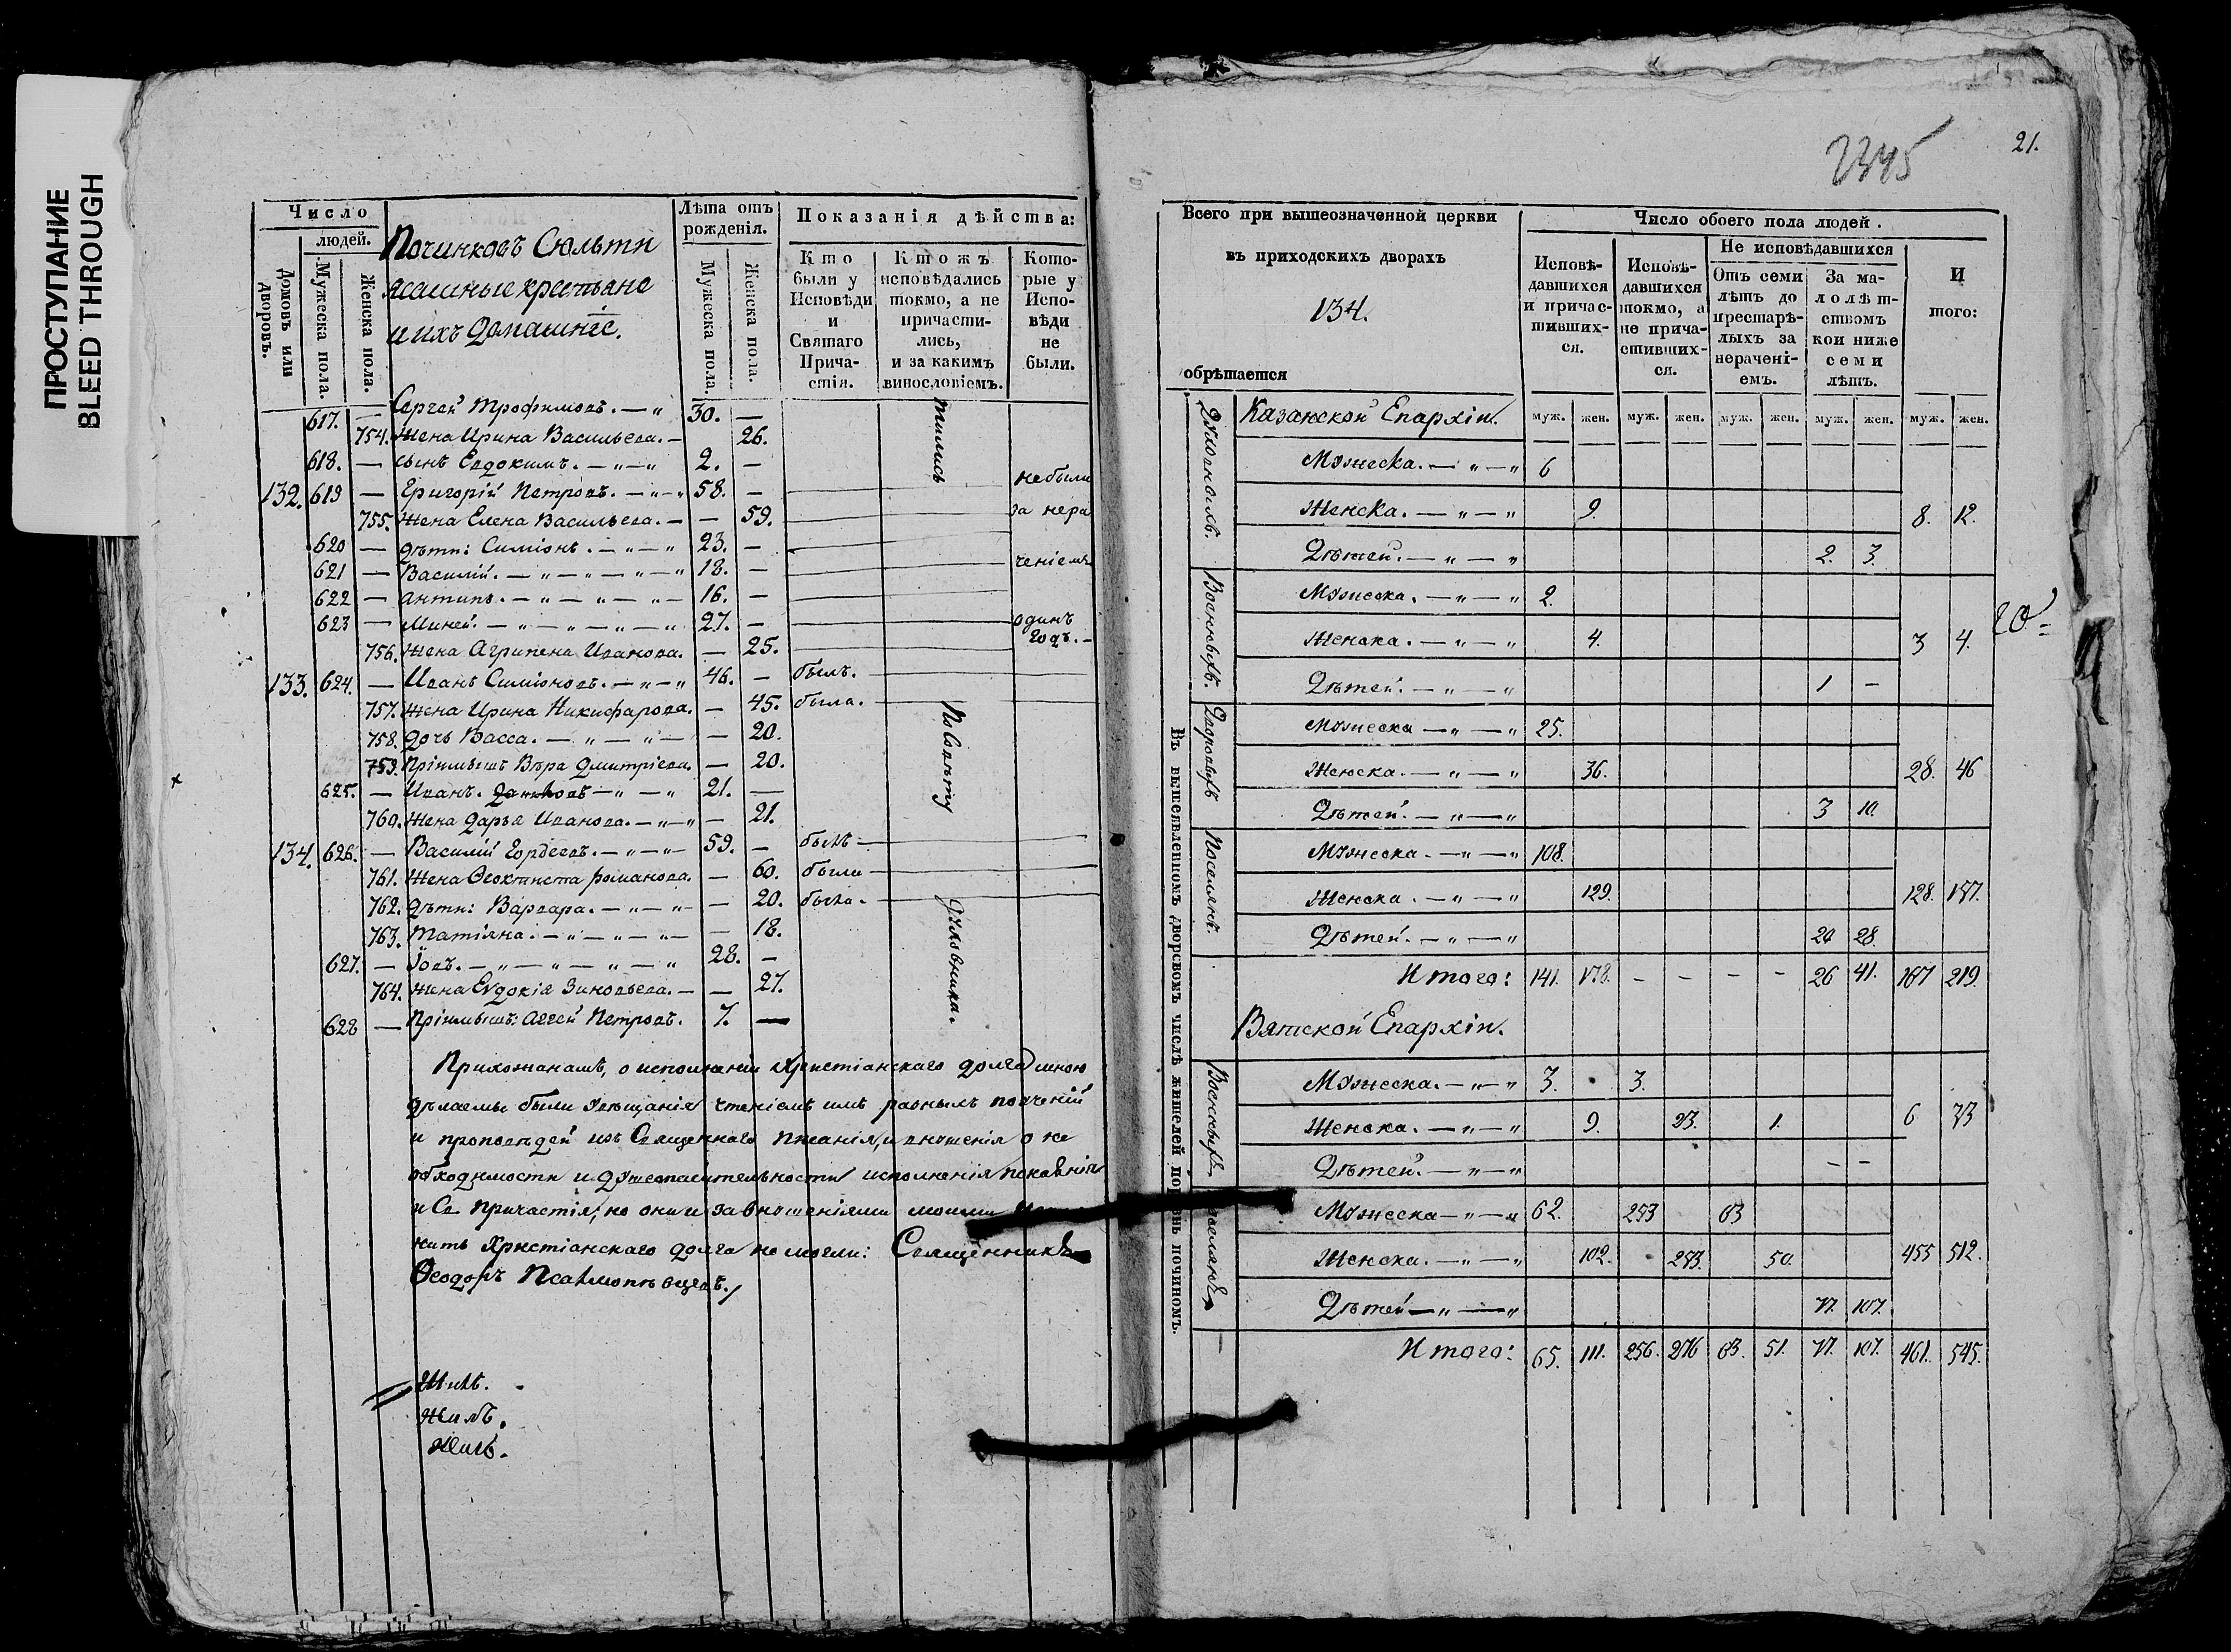 ПРОСТУПАНИЕ
BLEED THROUGH
Число
людей.
Домовъ или дворовъ.
Мужеска пола.
Женска пола.
Починковъ Сюльти
ясашные крестьяне
и ихъ домашніе.
Лѣта отъ рожденія.
Мужеска пола.
Женска пола.
Показанія дѣйства:
Кто были у Исповѣди и Святаго Причастія.
Ктожъ исповѣдались токмо, а не причастились, и за какимъ винословіемъ.
Которые у Исповѣди не были.
617. — Сергей Трофимовъ. — „ 30. —
754. Жена Ирина Васильева. — 26.
618. — сынъ Евдокимъ. — „ — „ 2. —
132. 619 — Григорій Петровъ. — „ — „ 58. — не были
755. Жена Елена Васильева. — — 59. за нера
620 — дѣти: Симіонъ. — „ — „ 23. —
621 — Василій. — „ — „ — „ — „ 18. — ченіемъ
622 — Антипъ. — „ — „ — „ — 16. —
623 — Миней. — „ — „ — „ — „ 27. — одинъ
годъ. —
756. Жена Агрипена Иванова. — 25.
133. 624. — Иванъ Симіоновъ. — „ — „ 46. — былъ.
757. Жена Ирина Никифарова. — 45. была.
758. дочь Васса. — „ — „ — — 20.
759. Пріимышъ Вѣра Дмитріева. — 20.
625. — Иванъ. — „ — „ 21. —
760. Жена Дарья Иванова. — „ — „ — 21.
134. 626. — Василій Гордеевъ. — „ — „ — 59. — былъ —
761. Жена Феоктиста Романова. — 60. были —
762. дѣти: Варвара. — „ — „ — — 20. была. —
763. Татіяна. — „ — „ — „ — — 18.
627. — Іовъ. — „ — „ — „ — „ 28. —
764. жена Евдокія Зиновьева. — — 27.
628 — Пріимышъ: Аггей Петровъ. 7. —
тились
По Совѣту
духовника.
Прихожанамъ, о исполненіи Христіанскаго долга мною
дѣлаемы были увѣщанія чтеніемъ имъ разныхъ поученій
и проповѣдей изъ Священнаго Писанія, и внушенія о не
обходимости и душеспасительности исполненія покаянія
и Св. Причастія; но они и за внушеніями моими
нить Христіанскаго долга не могли: Священникъ
Феодоръ Псаломпѣвцевъ.
Жилъ.
Жилъ.
Жилъ.
2345
21.
Всего при вышеозначенной церкви
въ приходскихъ дворахъ
134.
обрѣтается
Число обоего пола людей.
Исповѣдавшихся и причастившихся.
Исповѣдавшихся токмо, а не причастившихся.
Не исповѣдавшихся
Отъ семи лѣтъ до престарѣлыхъ за нерачені-емъ.
За малолѣтствомъ кои ниже семи лѣтъ.
И того:
муж. жен. муж. жен. муж. жен. муж. жен. муж. жен.
Въ вышеявленномъ дворовомъ числѣ жителей
починомъ.
Казанской Епархіи.
Духовныхъ.
Мужеска. — „ — „ 6
Женска. — „ — „ 9. 8. 12.
Дѣтей. — „ — „ 2. 3.
Военныхъ.
Мужеска. — „ — „ 2.
Женска. — „ — „ 4. 3 4.
20
Дѣтей. — „ — „ 1 —
Дворовыхъ
Мужеска — „ — „ 25.
Женска. — „ — „ 36. 28. 46
Дѣтей. — „ — „ 3 10.
Поселянъ.
Мужеска. — „ — „ 108.
Женска. — „ — „ 129. 128. 157.
Дѣтей. — „ — „ 20 28.
Итого: 141. 178. — — — — 26 41. 167 219.
Вятской Епархіи.
Военныхъ
Мужеска. — „ — „ 3. 3.
Женска. — „ — „ 9. 23. 1. 6 33
Дѣтей. — „ — „ — —
Поселянъ
Мужеска — „ — „ 62. 253 63
Женска. — „ — „ 102. 253. 50. 455 512.
Дѣтей — „ — „ 77. 107.
Итого: 65. 111. 256. 276 63. 51. 77. 107. 461. 545.